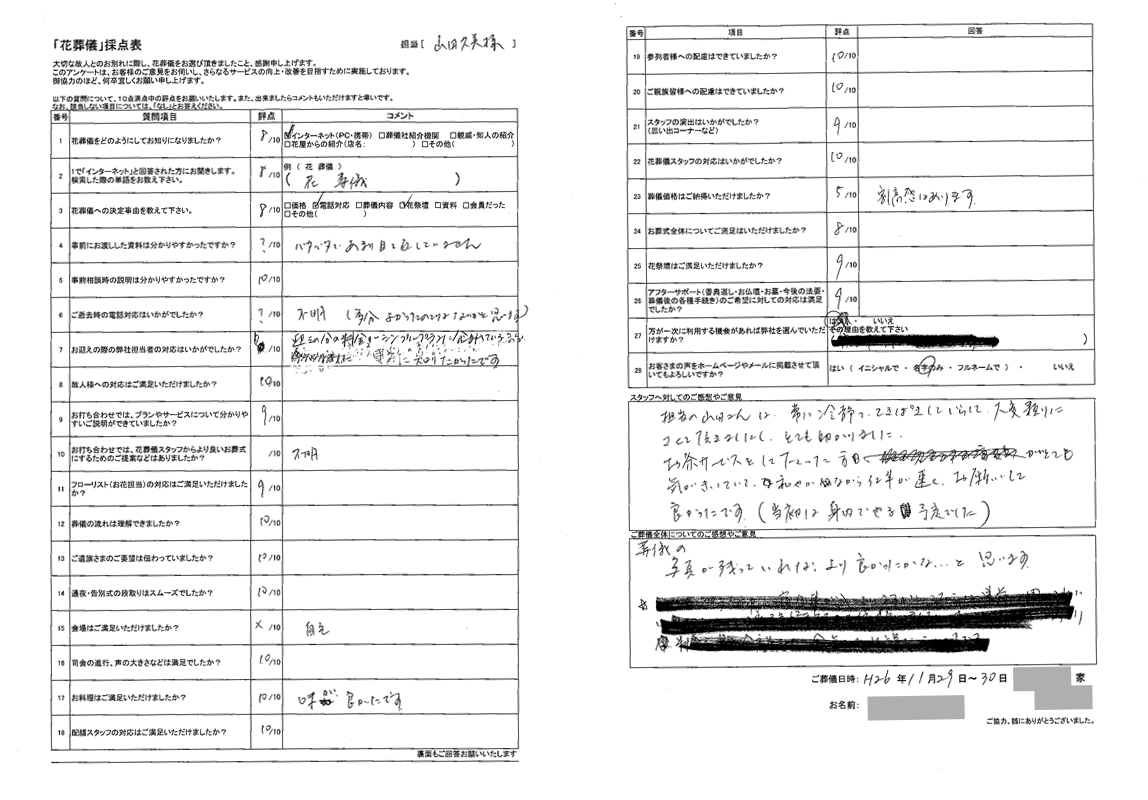 「花葬儀」採点表
担当［ 山田久美様 ］
大切な故人とのお別れに際し、花葬儀をお選び頂きましたこと、感謝申し上げます。
このアンケートは、お客様のご意見をお伺いし、さらなるサービスの向上・改善を目指すために実施しております。
御協力のほど、何卒宜しくお願い申し上げます。
以下の質問について、10点満点中の評点をお願いいたします。また、出来ましたらコメントもいただけますと幸いです。
なお、該当しない項目については、「なし」とお答えください。
番号 質問項目 評点 コメント
1 花葬儀をどのようにしてお知りになりましたか? 8/10 ☑インターネット(PC・携帯) □葬儀社紹介機関 □親戚・知人の紹介
□花屋からの紹介(店名: ) □その他( )
2 1で「インターネット」と回答された方にお聞きします。
検索した際の単語をお教え下さい。 8/10 例 ( 花 葬儀 )
( 花 葬儀 )
3 花葬儀への決定事由を教えて下さい。 8/10 □価格 ☑電話対応 □葬儀内容 ☑花祭壇 □資料 □会員だった
□その他( )
4 事前にお渡しした資料は分かりやすかったですか? ?/10 バタバタであまり目を通していません
5 事前相談時の説明は分かりやすかったですか? 10/10
6 ご逝去時の電話対応はいかがでしたか? ?/10 不明 (多分 よかったのではないかと思います)
7 お迎えの際の弊社担当者の対応はいかがでしたか? /10
事前に知りたかったです
8 故人様への対応はご満足いただけましたか? 10/10
9 お打ち合わせでは、プランやサービスについて分かりやすいご説明ができていましたか? 9/10
10 お打ち合わせでは、花葬儀スタッフからより良いお葬式にするためのご提案などはありましたか? /10 不明
11 フローリスト(お花担当)の対応はご満足いただけましたか? 9/10
12 葬儀の流れは理解できましたか? 10/10
13 ご遺族さまのご要望は伝わっていましたか? 10/10
14 通夜・告別式の段取りはスムーズでしたか? 10/10
15 会場はご満足いただけましたか? ×/10 自宅
16 司会の進行、声の大きさなどは満足でしたか? 10/10
17 お料理はご満足いただけましたか? 10/10 味 良かったです
18 配膳スタッフの対応はご満足いただけましたか? 10/10
裏面もご回答お願いいたします
番号 項目 評点 回答
19 参列者様への配慮はできていましたか? 10/10
20 ご親族皆様への配慮はできていましたか? 10/10
21 スタッフの演出はいかがでしたか?
(思い出コーナーなど) 9/10
22 花葬儀スタッフの対応はいかがでしたか? 10/10
23 葬儀価格はご納得いただけましたか? 5/10 割高感はあります。
24 お葬式全体についてご満足はいただけましたか? 8/10
25 花祭壇はご満足いただけましたか? 9/10
26 アフターサポート(香典返し・お仏壇・お墓・今後の法要・葬儀後の各種手続き)のご希望に対しての対応は満足でしたか? 9/10
27 万が一次に利用する機会があれば弊社を選んでいただけますか? はい ・ いいえ
その理由を教えて下さい
)
28 お客さまの声をホームページやメールに掲載させて頂いてもよろしいですか? はい ( イニシャルで ・ 名字のみ ・ フルネームで ) ・ いいえ
スタッフへ対してのご感想やご意見
担当の山田さんは、常に冷静で、てきぱきしていらして、大変頼りに
させて頂きましたし、とても助かりました。
お茶サービスとして入った方も がとても
気がきいていて、物和やかながら仕事が速く、お願いして
良かったです。(当初は身内でやる予定でした)
ご葬儀全体についてのご感想やご意見
葬儀の
写真が残っていれば、より良かったかな…と思います。
ご葬儀日時: H26 年 11 月 29 日〜 30 日 家
お名前:
ご協力、誠にありがとうございました。